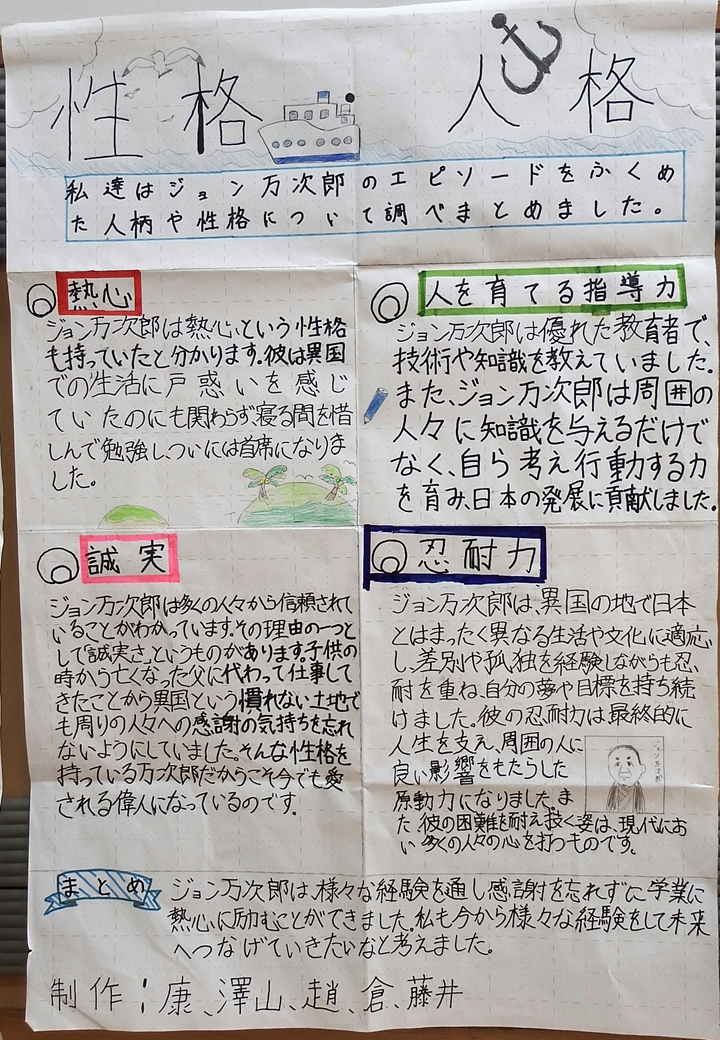 性格 人格
私達はジョン万次郎のエピソードをふくめ
た人柄や性格について調べまとめました。
熱心
ジョン万次郎は熱心という性格
も持っていたと分かります。彼は異国
での生活に戸惑いを感じ
ていたのにも関わらず、寝る間を惜
しんで勉強しついには首席になりま
した。
人を育てる指導力
ジョン万次郎は優れた教育者で、
技術や知識を教えていました。
また、ジョン万次郎は周囲の
人々に知識を与えるだけで
なく、自ら考え行動する力
を育み、日本の発展に貢献しました。
誠実
ジョン万次郎は多くの人々から信頼されて
いることがわかっています。その理由の一つと
して「誠実さ」というものがあります。子供の
時から亡くなった父に代わって仕事して
きたことから異国という慣れない土地で
も周りの人々への感謝の気持ちを忘れ
ないようにしていました。そんな性格を
持っている万次郎だからこそ今でも愛
される偉人になっているのです。
忍耐力
ジョン万次郎は、異国の地で日本
とはまったく異なる生活や文化に適応
し、差別や孤独を経験しながらも忍
耐を重ね、自分の夢や目標を持ち続
けました。彼の忍耐力は最終的に
人生を支え、周囲の人に
良い影響をもたらした
原動力になりました。ま
た、彼の困難を耐え抜く姿は、現代にお
い多くの人々の心を打つものです。
ジョン万次郎
まとめ
ジョン万次郎は、様々な経験を通し感謝を忘れずに学業に
熱心に励むことができました。私も今から様々な経験をして未来
へつなげていきたいなと考えました。
制作:康、澤山、趙、倉、藤井